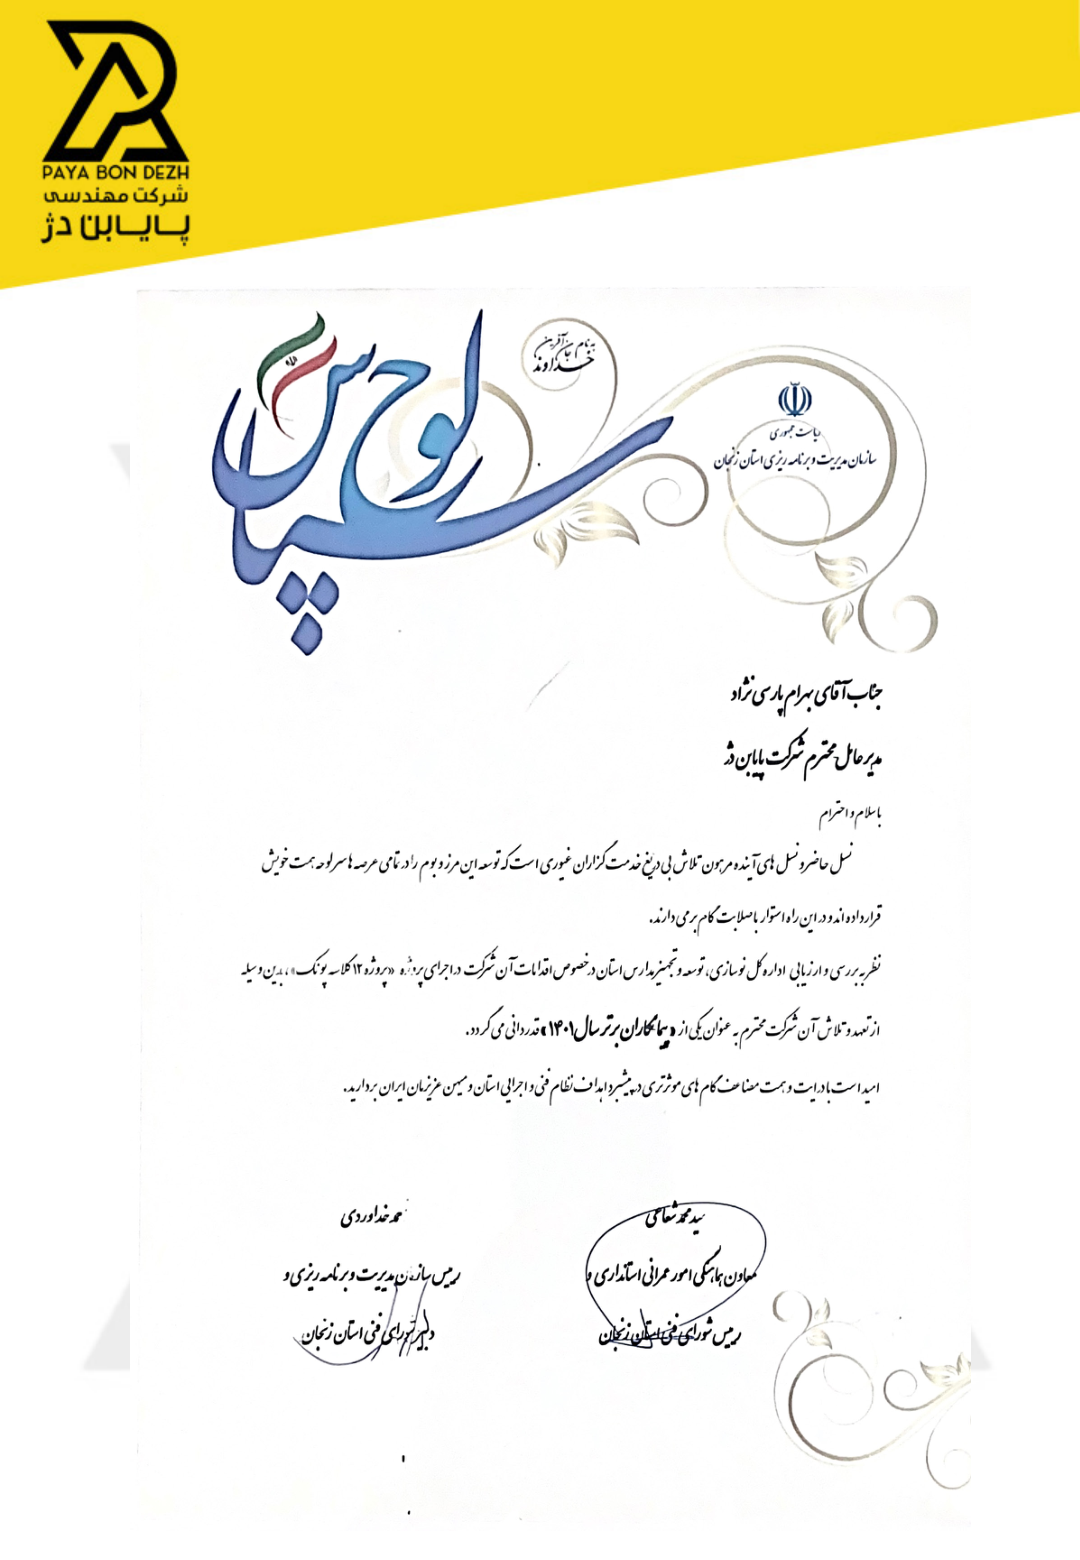 PAYA BON DEZH
شرکت مهندسی
پایابن دژ
به نام جان آفرین
خداوند
لوح سپاس
ریاست جمهوری
سازمان مدیریت و برنامه ریزی استان زنجان
جناب آقای بهرام پارسی نژاد
مدیرعامل محترم شرکت پایابن دژ
با سلام و احترام
نسل حاضر و نسل های آینده مرهون تلاش بی دریغ خدمت گزاران غیوری است که توسعه این مرز و بوم را در تمامی عرصه ها سرلوحه همت خویش
قرار داده اند و در این راه استوار با صلابت گام بر می دارند.
نظر به بررسی و ارزیابی اداره کل نوسازی، توسعه و تجهیز مدارس استان در خصوص اقدامات آن شرکت در اجرای پروژه «پروژه ۱۲ کلاسه پونک»، بدین وسیله
از تعهد و تلاش آن شرکت محترم به عنوان یکی از «پیمانکاران برتر سال ۱۴۰۱» قدردانی می گردد.
امید است با درایت و همت مضاعف گام های موثرتری در پیشبرد اهداف نظام فنی و اجرایی استان و میهن عزیزمان ایران بردارید.
سید محمد شعاعی
معاون هماهنگی امور عمرانی استانداری و
رییس شورای فنی استان زنجان
محمد خداوردی
رییس سازمان مدیریت و برنامه ریزی و
دبیر شورای فنی استان زنجان